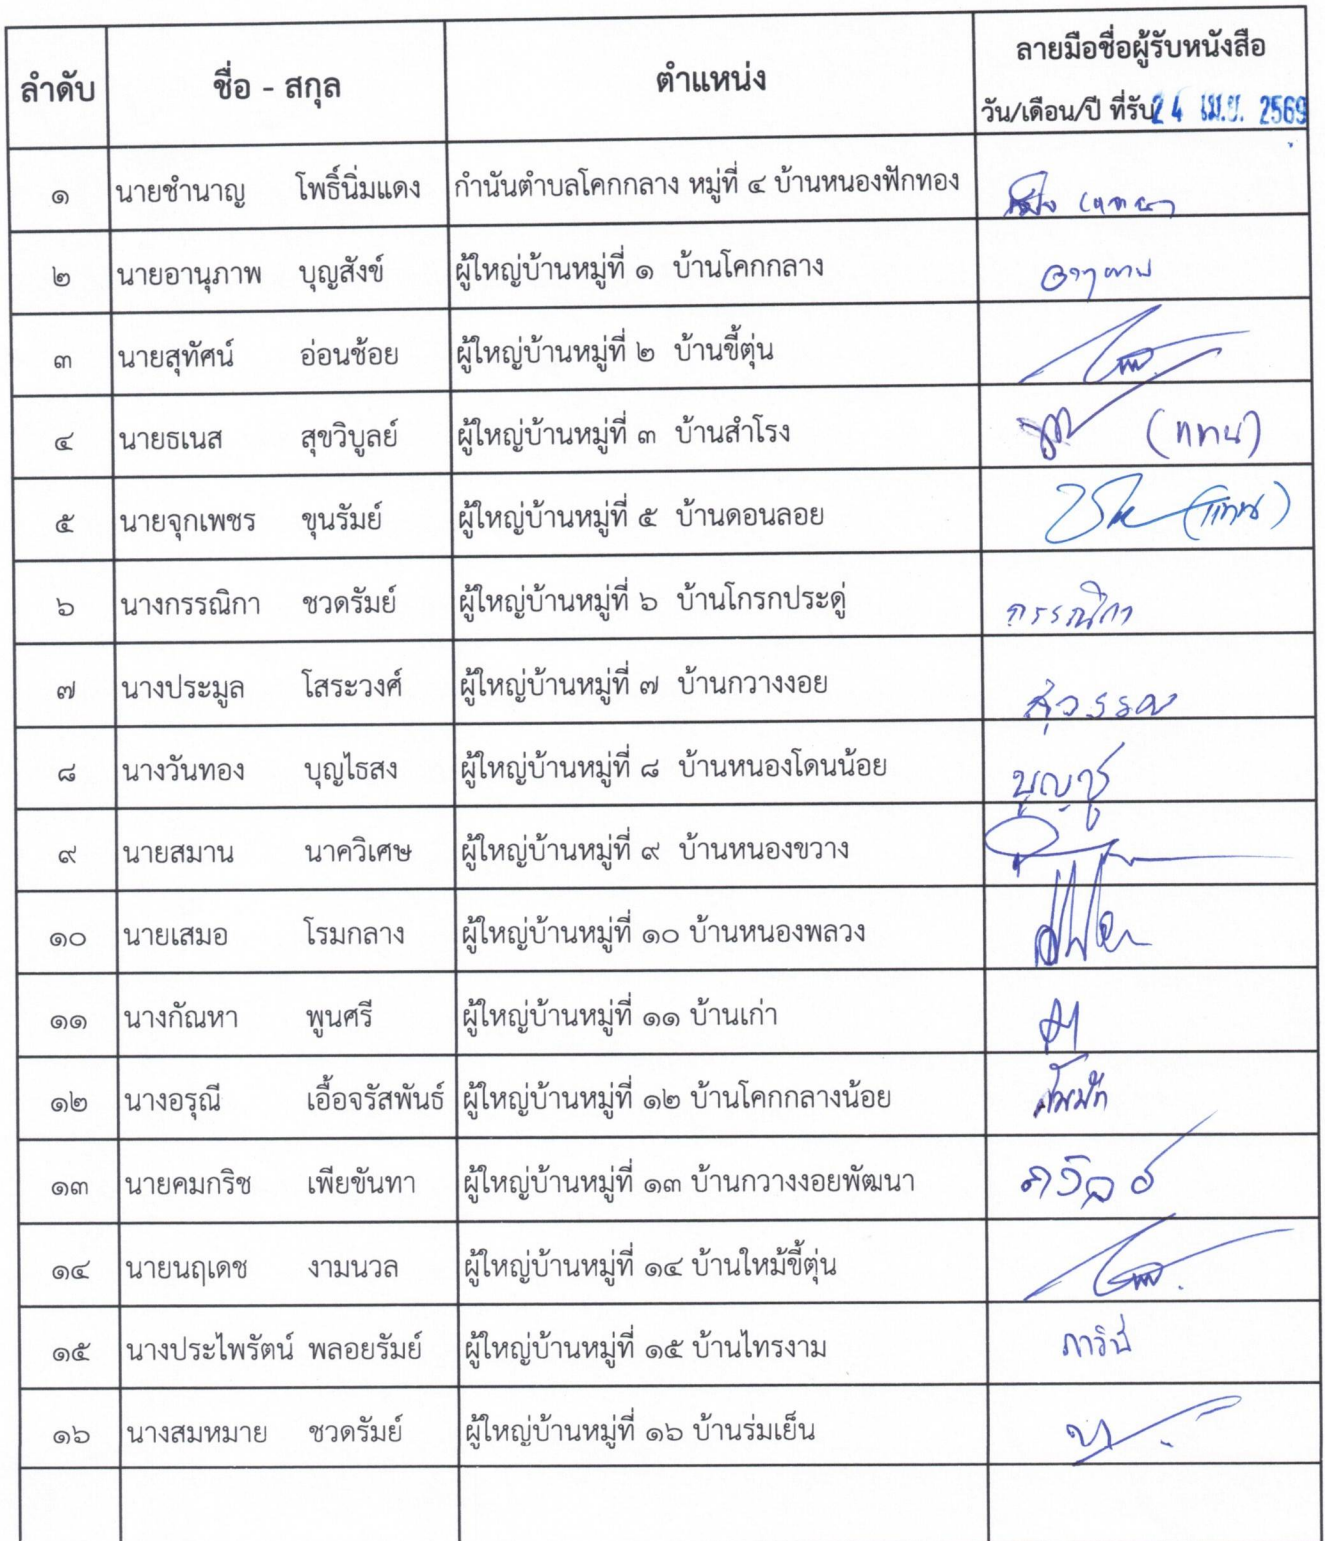 ลำดับ ชื่อ - สกุล ตำแหน่ง ลายมือชื่อผู้รับหนังสือ
วัน/เดือน/ปี ที่รับ 24 เม.ย. 2569
๑ นายชำนาญ โพธิ์นิ่มแดง กำนันตำบลโคกกลาง หมู่ที่ ๔ บ้านหนองฟักทอง
๒ นายอานุภาพ บุญสังข์ ผู้ใหญ่บ้านหมู่ที่ ๑ บ้านโคกกลาง อานุภาพ
๓ นายสุทัศน์ อ่อนช้อย ผู้ใหญ่บ้านหมู่ที่ ๒ บ้านขี้ตุ่น
๔ นายธเนส สุขวิบูลย์ ผู้ใหญ่บ้านหมู่ที่ ๓ บ้านสำโรง (แทน)
๕ นายจุกเพชร ขุนรัมย์ ผู้ใหญ่บ้านหมู่ที่ ๕ บ้านดอนลอย (แทน)
๖ นางกรรณิกา ชวดรัมย์ ผู้ใหญ่บ้านหมู่ที่ ๖ บ้านโกรกประดู่ กรรณิกา
๗ นางประมูล โสระวงศ์ ผู้ใหญ่บ้านหมู่ที่ ๗ บ้านกวางงอย
๘ นางวันทอง บุญไธสง ผู้ใหญ่บ้านหมู่ที่ ๘ บ้านหนองโดนน้อย บุญชู
๙ นายสมาน นาควิเศษ ผู้ใหญ่บ้านหมู่ที่ ๙ บ้านหนองขวาง
๑๐ นายเสมอ โรมกลาง ผู้ใหญ่บ้านหมู่ที่ ๑๐ บ้านหนองพลวง
๑๑ นางกัณหา พูนศรี ผู้ใหญ่บ้านหมู่ที่ ๑๑ บ้านเก่า
๑๒ นางอรุณี เอื้อจรัสพันธ์ ผู้ใหญ่บ้านหมู่ที่ ๑๒ บ้านโคกกลางน้อย
๑๓ นายคมกริช เพียขันทา ผู้ใหญ่บ้านหมู่ที่ ๑๓ บ้านกวางงอยพัฒนา
๑๔ นายนฤเดช งามนวล ผู้ใหญ่บ้านหมู่ที่ ๑๔ บ้านใหม้ขี้ตุ่น
๑๕ นางประไพรัตน์ พลอยรัมย์ ผู้ใหญ่บ้านหมู่ที่ ๑๕ บ้านไทรงาม
๑๖ นางสมหมาย ชวดรัมย์ ผู้ใหญ่บ้านหมู่ที่ ๑๖ บ้านร่มเย็น